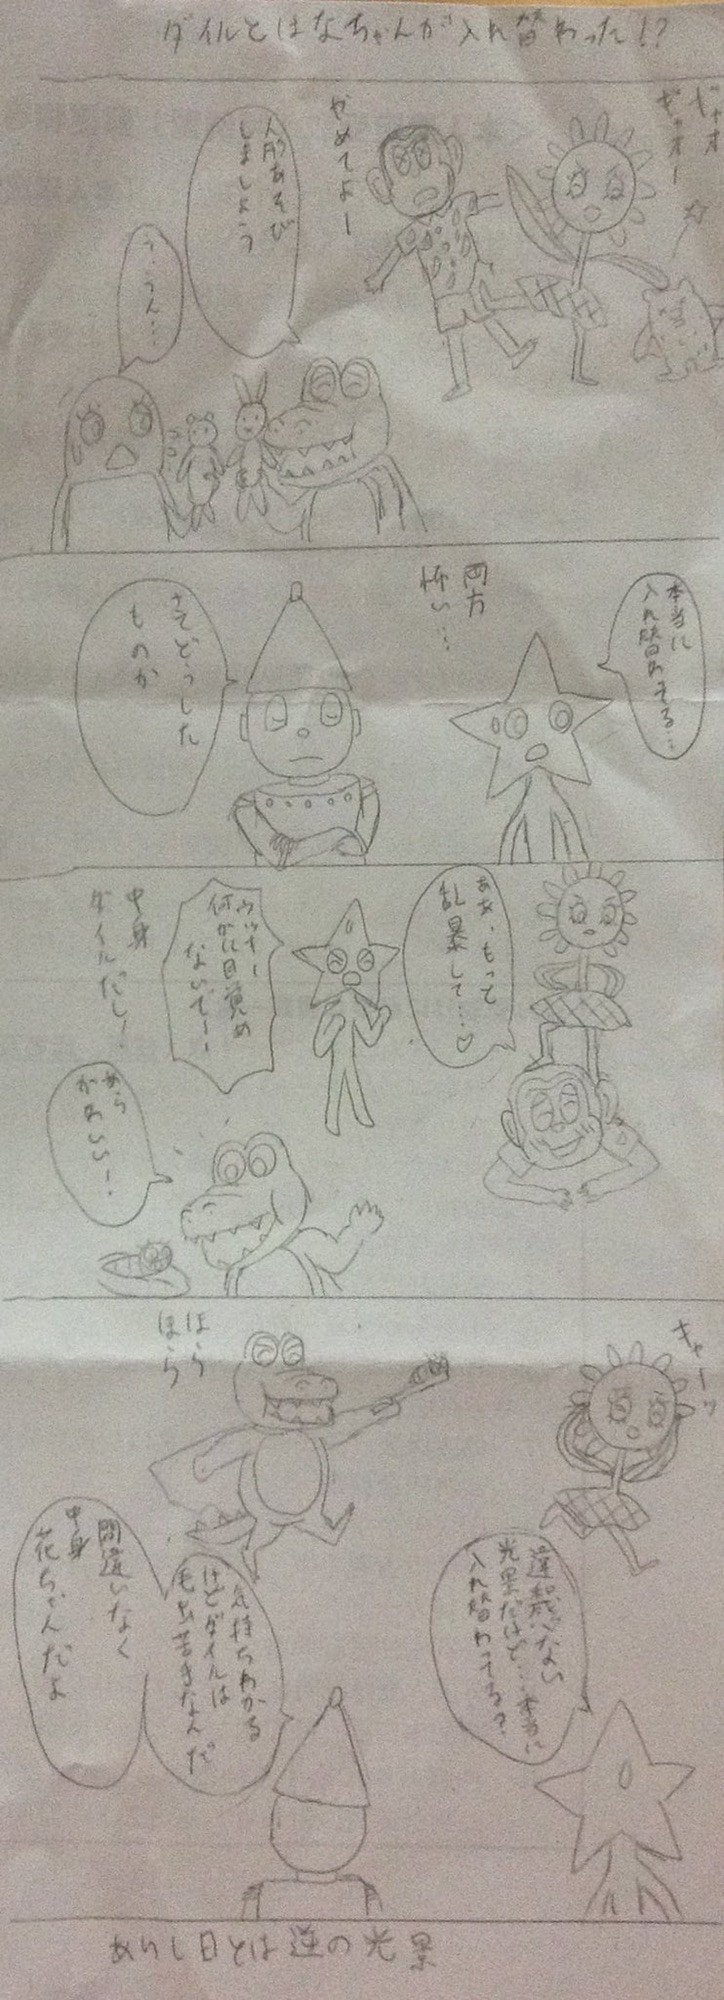 ダイルとはなちゃんが入れ替わった!?
ギャオ
ギャオー
やめてよー
人形あそび
しましょう
う、うん…
本当に
入れ替わってる…
両方
怖い…
さてどうした
ものか
ああ、もっと
乱暴して…♡
ウッキー
何かに目覚め
ないでー!
中身
ダイルだし!
あら
かわいい!
キャーッ
ほら
ほら
違和感がない
光景だけど…本当に
入れ替わってる?
気持ちわかる
けどダイルは
毛虫苦手なんだ
間違いなく
中身
花ちゃんだよ
ありし日とは逆の光景